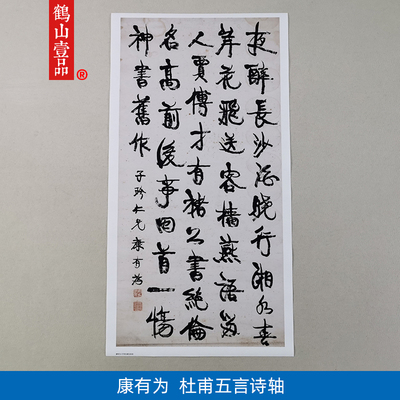 鶴山壹品®
夜醉長沙酒曉行湘水春
岸花飛送客檣燕語留
人賈傅才有褚公書絕倫
名高前後事回首一傷
神書舊作 子珍仁兄 康有為
康有为 杜甫五言诗轴